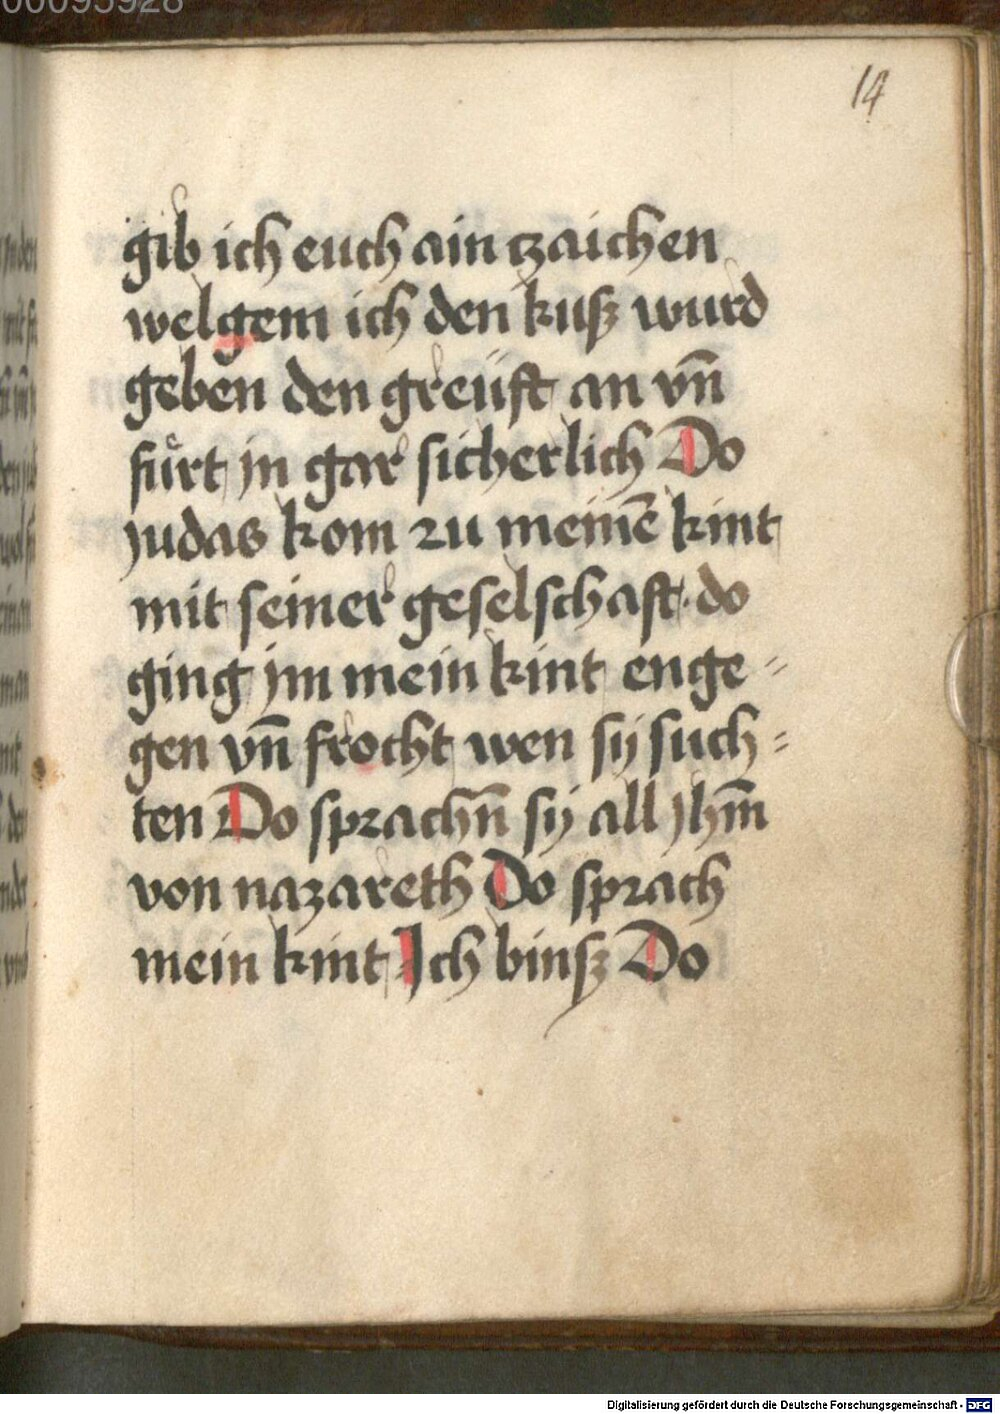 00095928
14
gib ich euch ain tzaichen
welgem ich den kusz wurd
geben den greüft an vn̄
fuͤrt in gar sicherlich Do
judas kom zu meinē kint
mit seiner geselschaft · do
ging jm mein kint enge⸗
gen vn̄ frocht wen sÿ such⸗
ten Do sprachn̄ sÿ all jhm̄
von nazareth Do sprach
mein kint Ich binsz Do
Digitalisierung gefördert durch die Deutsche Forschungsgemeinschaft - DFG